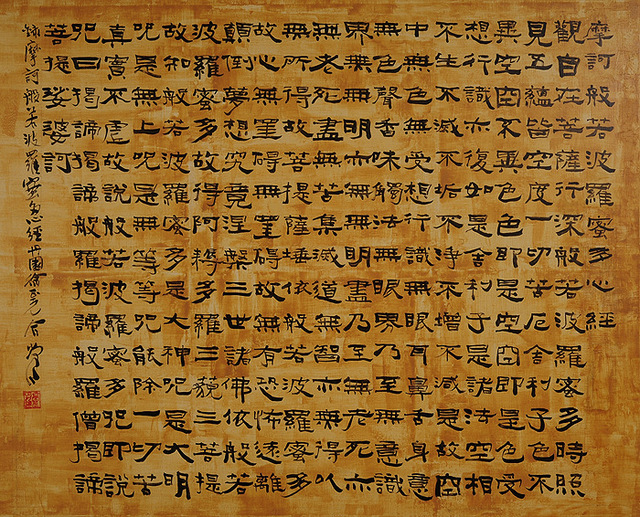 摩訶般若波羅蜜多心經
觀自在菩薩行深般若波羅蜜多時照
見五蘊皆空度一切苦厄舍利子色不
異空空不異色色即是空空即是色受
想行識亦復如是舍利子是諸法空相
不生不滅不垢不淨不增不減是故空
中無色無受想行識無眼耳鼻舌身意
無色聲香味觸法無眼界乃至無意識
界無無明亦無無明盡乃至無老死亦
無老死盡無苦集滅道無智亦無得以
無所得故菩提薩埵依般若波羅蜜多
故心無罣礙無罣礙故無有恐怖遠離
顛倒夢想究竟涅槃三世諸佛依般若
波羅蜜多故得阿耨多羅三藐三菩提
故知般若波羅蜜多是大神咒是大明
咒是無上咒是無等等咒能除一切苦
真實不虛故說般若波羅蜜多咒即說
咒曰揭諦揭諦般羅揭諦般羅僧揭諦
菩提娑婆訶
摩訶般若波羅蜜多心經